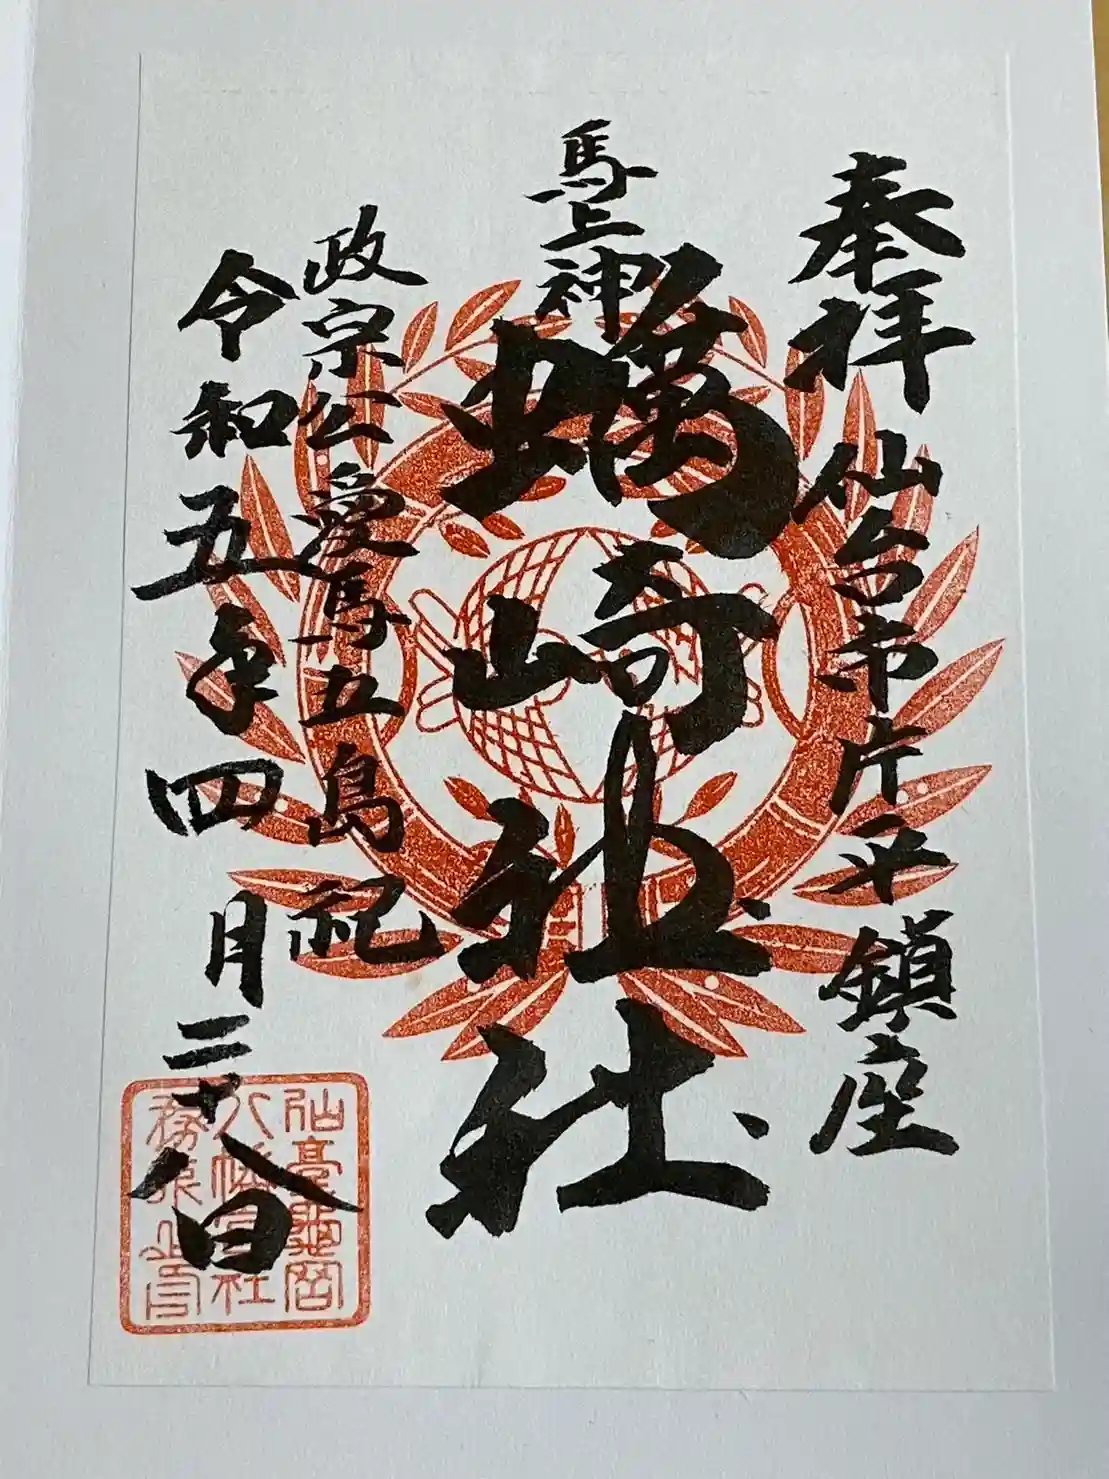 奉拝 仙台市片平鎮座
馬上神
蠣崎神社
政宗公愛馬五島祀
令和五年四月二十八日
仙臺龜岡
八幡宮社
務所之印